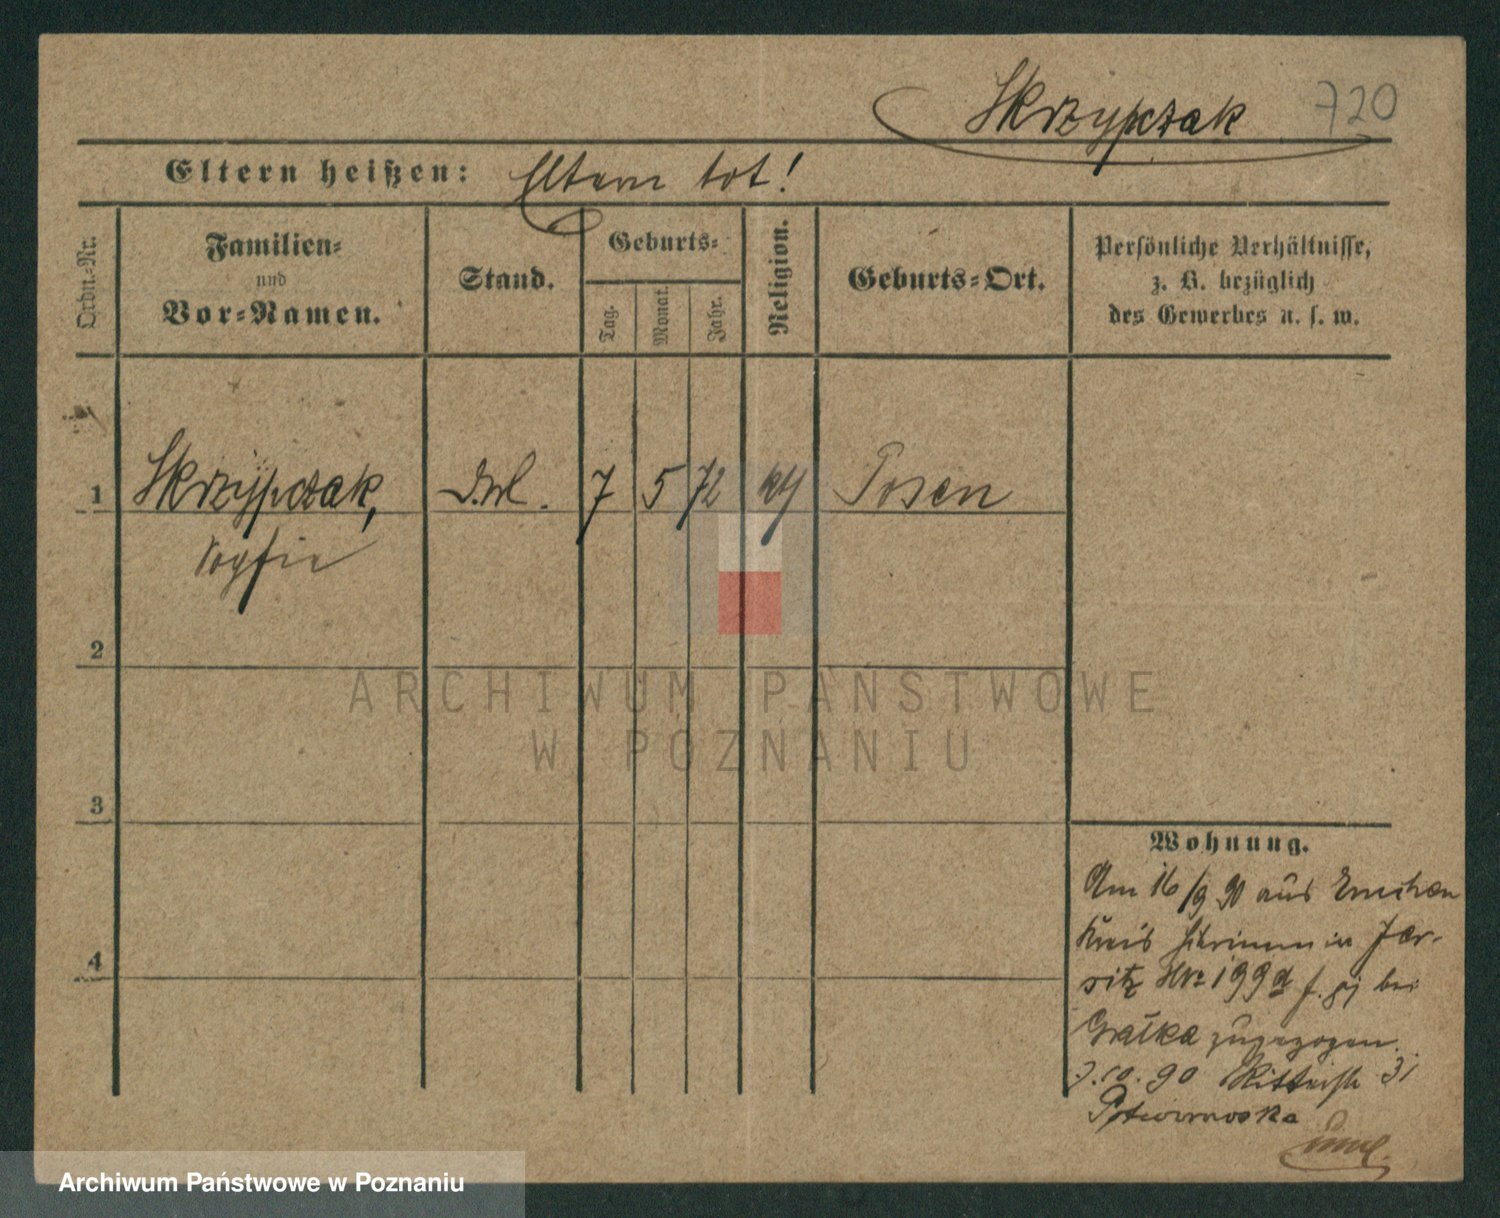 Skrzypczak 720
Eltern heißen: Eltern tot!
Ordn.-Nr.
Familien-
und
Vor-Namen.
Stand.
Geburts-
Tag.
Monat.
Jahr.
Religion.
Geburts-Ort.
Persönliche Verhältnisse,
z. B. bezüglich
des Gewerbes u. s. w.
1 Skrzypczak, 7 5 72 Posen
Sophie
2
3
4
Wohnung.
Am 16/9 90 aus
Kreis Schrimm in Jer-
sitz No 199 bei
zugezogen.
7.10.90 31
ARCHIWUM PAŃSTWOWE
W POZNANIU
Archiwum Państwowe w Poznaniu